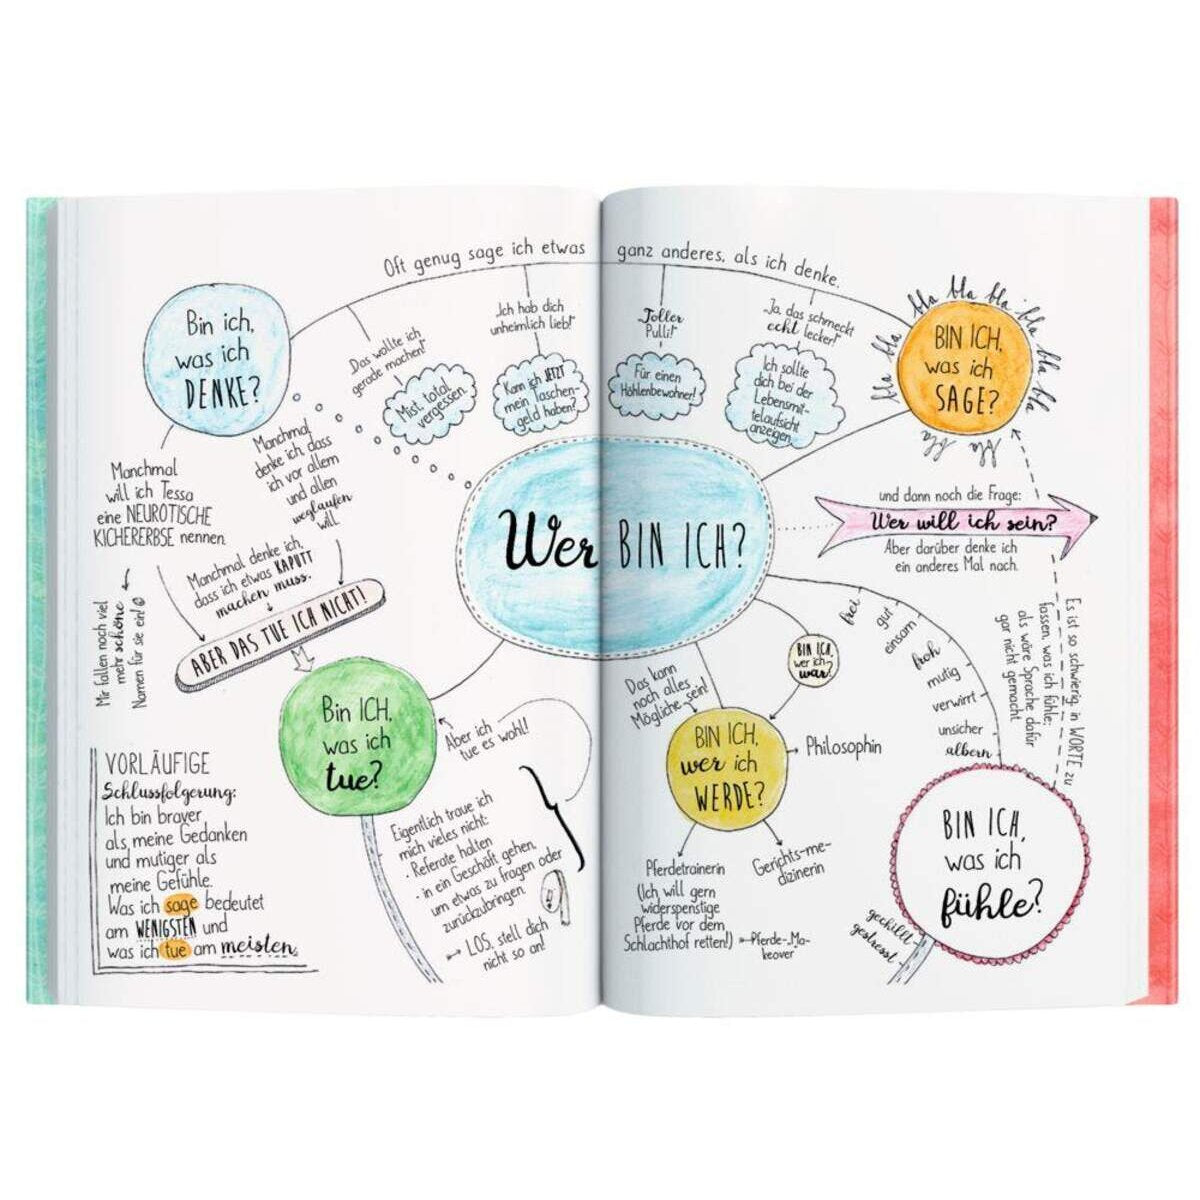 Oft genug sage ich etwas ganz anderes, als ich denke.
Bin ich,
was ich
DENKE?
„Das wollte ich
gerade machen!“
Mist, total
vergessen.
„Ich hab dich
unheimlich lieb!“
Kann ich JETZT
mein Taschen-
geld haben?
„Toller
Pulli!“
Für einen
Höhlenbewohner!
„Ja, das schmeckt
echt lecker!“
Ich sollte
dich bei der
Lebensmit-
telaufsicht
anzeigen.
bla bla bla bla bla bla bla bla bla bla bla
BIN ICH,
was ich
SAGE?
Manchmal
will ich Tessa
eine NEUROTISCHE
KICHERERBSE nennen.
Mir fallen noch viel
mehr schöne
Namen für sie ein!
Manchmal
denke ich, dass
ich vor allem
und allen
weglaufen
will.
Manchmal denke ich,
dass ich etwas KAPUTT
machen muss.
ABER DAS TUE ICH NICHT!
Wer BIN ICH?
und dann noch die Frage:
Wer will ich sein?
Aber darüber denke ich
ein anderes Mal nach.
Bin ICH,
was ich
tue?
Aber ich
tue es wohl!
Eigentlich traue ich
mich vieles nicht:
· Referate halten
· in ein Geschäft gehen,
um etwas zu fragen oder
zurückzubringen.
LOS, stell dich
nicht so an!
VORLÄUFIGE
Schlussfolgerung:
Ich bin braver
als meine Gedanken
und mutiger als
meine Gefühle.
Was ich sage bedeutet
am WENIGSTEN und
was ich tue am meisten.
BIN ICH,
wer ich
war?
Das kann
noch alles
Mögliche sein!
BIN ICH,
wer ich
WERDE?
Philosophin
Gerichts-me-
dizinerin
Pferdetrainerin
(Ich will gern
widerspenstige
Pferde vor dem
Schlachthof retten!)
Pferde-Ma-
keover
frei
gut
einsam
froh
mutig
verwirrt
unsicher
albern
Es ist so schwierig, in WORTE zu
fassen, was ich fühle;
als wäre Sprache dafür
gar nicht gemacht
BIN ICH,
was ich
fühle?
gechillt
gestresst